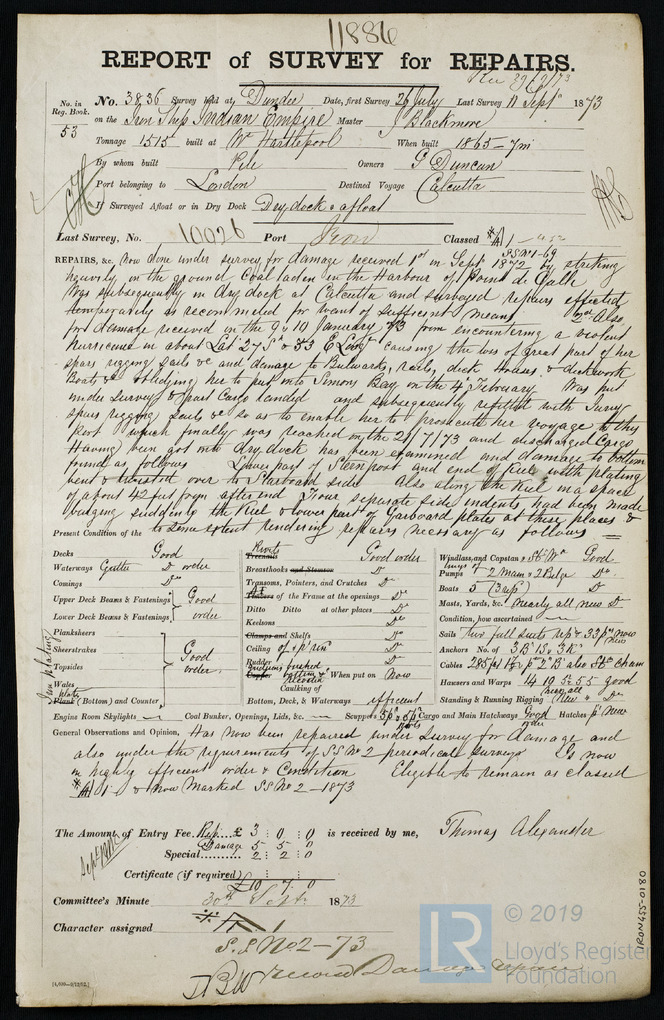 11886
REPORT of SURVEY for REPAIRS.
No. in Reg. Book. 53
No. 3836 Survey held at Dundee Date, first Survey 26 July Last Survey 11 Sept 1873
on the Iron Ship Indian Empire Master J Blackmore
Tonnage 1515 built at Wt Hartlepool When built 1865-7m
By whom built Pile Owners G Duncan
Port belonging to London Destined Voyage Calcutta
If Surveyed Afloat or in Dry Dock Dry dock & afloat
Last Survey, No. 10026 Port Classed A 1
SS No 1-69
REPAIRS, &c. Now done under survey for damage received 1st in Sept 1872 by striking
heavily on the ground Coal laden in the Harbour of Point de Galle
Was subsequently in dry dock at Calcutta and surveyed repairs effected
temporarily as recommended for want of sufficient means 2nd Also
for damage received in the 9 & 10 January 73 from encountering a violent
hurricane in about Lat 27 S & 53 E Long causing the loss of great part of her
spars rigging sails &c and damage to Bulwarks, rails, deck Houses, & deckwork
Boats &c obledging her to put into Simons Bay on the 4 February Was put
under survey & part Cargo landed and subsequently refitted with Jurry
spars rigging sails &c so as to enable her to prosecute her voyage to this
Port which finally was reached on the 21/7/73 and discharged Cargo
Having been got into dry dock has been examined and damage to bottom
found as follows Lower part of Sternpost and end of Keel with plating
bent & twisted over to Starboard side Also along the Keel in a space
of about 42 feet from after end Four separate side indents had been made
bulging suddenly the Keel & lower part of Garboard plates at these places &
to some extent rendering repairs necessary as follows
Present Condition of the
Decks Good
Waterways Gutter Do order
Comings Do
Upper Deck Beams & Fastenings
Lower Deck Beams & Fastenings
Good order
Planksheers
Sheerstrakes
Topsides
Wales
Plank (Bottom) and Counter
Good order
Iron plating
plate
Engine Room Skylights
Rivets
Treenails Good order
Breasthooks and Stemson Do
Transoms, Pointers, and Crutches Do
of the Frame at the openings Do
Ditto Ditto at other places Do
Keelsons Do
Clamps and Shelfs Do
Ceiling Do
Rudder Do
Copper When put on Now
Caulking of
Bottom, Deck, & Waterways efficient
Coal Bunker, Openings, Lids, &c.
Scuppers
Windlass, and Capstan Good
Pumps 2 Main & 2 Bilge Do
Boats 5 Do
Masts, Yards, &c. nearly all new Do
Condition, how ascertained
Sails two full suits
Anchors No. of 3 B 1 S 2 K
Cables
Hausers and Warps good
Standing & Running Rigging nearly all New & Do
Cargo and Main Hatchways Good order Hatches New
General Observations and Opinion, Has now been repaired under survey for damage and
also under the requirements of SS No 2 periodical surveys Is now
in highly efficient order & Condition Eligible to remain as classed
A 1 & Now Marked SS No 2-1873
The Amount of Entry Fee. Rep. £ 3 : 0 : 0 is received by me, Thomas Alexander
Damage 5 5 0
Special 2 2 0
Certificate (if required)
£10 7 0
Committee's Minute 30th Sept 1873
Character assigned A 1
S.S No 2-73
record Damage repairs
IRON455-0180
LR
© 2019
Lloyd's Register
Foundation